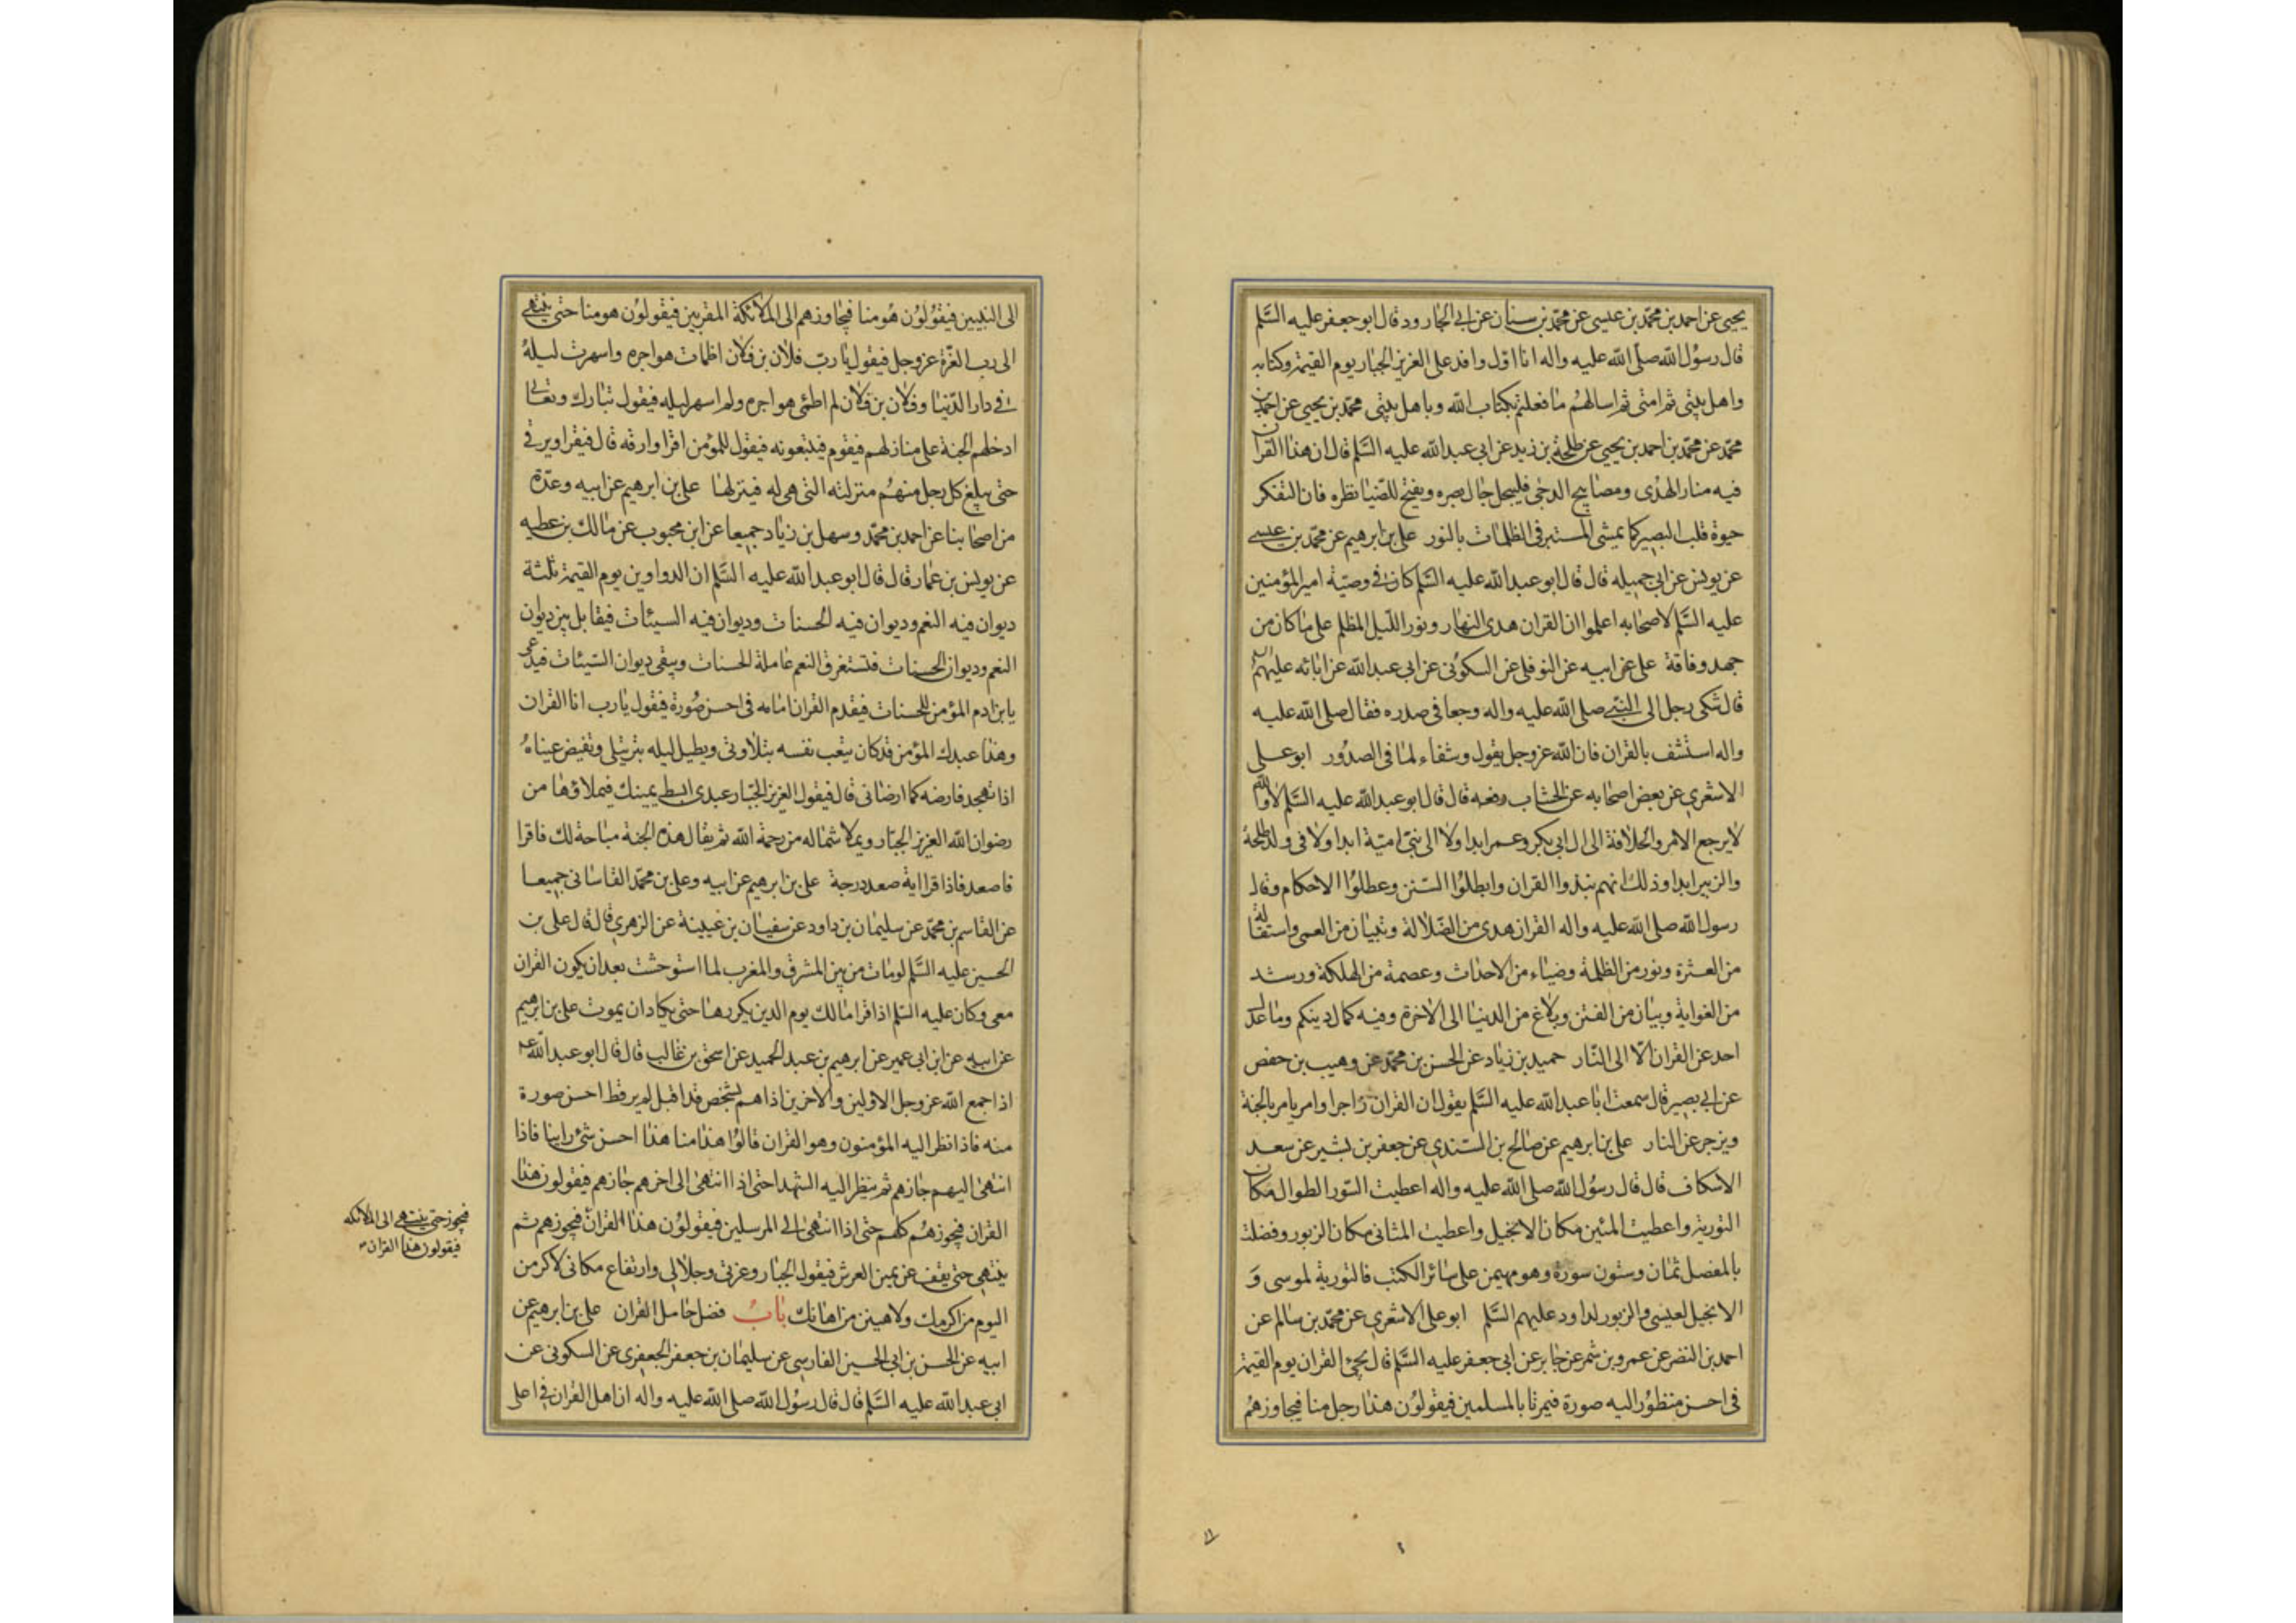 يحيى عن احمد بن محمد بن عيسى عن محمد بن سنان عن ابى الجارود قال ابو جعفر عليه السلم
قال رسول الله صلى الله عليه واله انا اول وافد على العزيز الجبار يوم القيمة وكتابه
واهل بيتى ثم امتى ثم اسالهم ما فعلتم بكتاب الله وباهل بيتى محمد بن يحيى عن احمد بن
محمد عن محمد بن احمد بن يحيى عن طلحة بن زيد عن ابى عبد الله عليه السلم قال ان هذا القران
فيه منار الهدى ومصابيح الدجى فليجل جال بصره ويفتح للضيا نظره فان التفكر
حيوة قلب البصير كما يمشى المستنير فى الظلمات بالنور على بن ابرهيم عن محمد بن عيسى
عن يونس عن ابى جميله قال قال ابو عبد الله عليه السلم كان فى وصية امير المؤمنين
عليه السلم لاصحابه اعلموا ان القران هدى النهار ونور الليل المظلم على ما كان من
جهد وفاقة على عن ابيه عن النوفلى عن السكونى عن ابى عبد الله عن ابائه عليهم
قال شكى رجل الى النبى صلى الله عليه واله وجعا فى صدره فقال صلى الله عليه
واله استشف بالقران فان الله عز وجل يقول وشفاء لما فى الصدور ابو على
الاشعرى عن بعض اصحابه عن الخشاب رفعه قال قال ابو عبد الله عليه السلم لا والله
لا يرجع الامر والخلافة الى ال ابى بكر وعمر ابدا ولا الى بنى امية ابدا ولا فى ولد طلحة
والزبير ابدا وذلك انهم نبذوا القران وابطلوا السنن وعطلوا الاحكام وقال
رسول الله صلى الله عليه واله القران هدى من الضلالة وتبيان من العمى واستقالة
من العثرة ونور من الظلمة وضياء من الاحداث وعصمة من الهلكة ورشد
من الغواية وبيان من الفتن وبلاغ من الدنيا الى الاخرة وفيه كمال دينكم وما عدل
احد عن القران الا الى النار حميد بن زياد عن الحسن بن محمد عن وهيب بن حفص
عن ابى بصير قال سمعت ابا عبد الله عليه السلم يقول ان القران زاجر وامر يامر بالجنة
ويزجر عن النار على بن ابرهيم عن صالح بن السندى عن جعفر بن بشير عن سعد
الاسكاف قال قال رسول الله صلى الله عليه واله اعطيت السور الطوال مكان
التورية واعطيت المئين مكان الانجيل واعطيت المثانى مكان الزبور وفضلت
بالمفصل ثمان وستون سورة وهو مهيمن على سائر الكتب فالتورية لموسى و
الانجيل لعيسى والزبور لداود عليهم السلم ابو على الاشعرى عن محمد بن سالم عن
احمد بن النضر عن عمرو بن شمر عن جابر عن ابى جعفر عليه السلم قال يجئ القران يوم القيمة
فى احسن منظور اليه صورة فيمر بالمسلمين فيقولون هذا رجل منا فيجاوزهم
الى النبيين فيقولون هو منا فيجاوزهم الى الملائكة المقربين فيقولون هو منا حتى ينتهى
الى رب العزة عز وجل فيقول يا رب فلان بن فلان اظمات هواجره واسهرت ليله
فى دار الدنيا وفلان بن فلان لم اظمئ هواجره ولم اسهر ليله فيقول تبارك وتعالى
ادخلهم الجنة على منازلهم فيقوم فيتبعونه فيقول للمؤمن اقرا وارقه قال فيقرا ويرقى
حتى يبلغ كل رجل منهم منزلته التى هى له فينزلها على بن ابرهيم عن ابيه وعدة
من اصحابنا عن احمد بن محمد وسهل بن زياد جميعا عن ابن محبوب عن مالك بن عطيه
عن يونس بن عمار قال قال ابو عبد الله عليه السلم ان الدواوين يوم القيمة ثلثة
ديوان فيه النعم وديوان فيه الحسنات وديوان فيه السيئات فيقابل بين ديوان
النعم وديوان الحسنات فتستغرق النعم عاملة الحسنات ويبقى ديوان السيئات فيدعى
يابن ادم المؤمن للحسنات فيقدم القران امامه فى احسن صورة فيقول يا رب انا القران
وهذا عبدك المؤمن قد كان يتعب نفسه بتلاوتى ويطيل ليله بترتيلى وتفيض عيناه
اذا تهجد فارضه كما ارضانى قال فيقول العزيز الجبار عبدى ابسط يمينك فيملاؤها من
رضوان الله العزيز الجبار ويملا شماله من رحمة الله ثم يقال هذه الجنة مباحة لك فاقرا
فاصعد فاذا قرا اية صعد درجة على بن ابرهيم عن ابيه وعلى بن محمد القاسانى جميعا
عن القاسم بن محمد عن سليمان بن داود عن سفيان بن عيينة عن الزهرى قال قال على بن
الحسين عليه السلم لو مات من بين المشرق والمغرب لما استوحشت بعد ان يكون القران
معى وكان عليه السلم اذا قرا مالك يوم الدين يكررها حتى يكاد ان يموت على بن ابرهيم
عن ابيه عن ابن ابى عمير عن ابرهيم بن عبد الحميد عن اسحق بن غالب قال قال ابو عبد الله ع
اذا جمع الله عز وجل الاولين والاخرين اذا هم بشخص قد اقبل لم ير قط احسن صورة
منه فاذا نظر اليه المؤمنون وهو القران قالوا هذا منا هذا احسن شئ راينا فاذا
انتهى اليهم جازهم ثم ينظر اليه الشهدا حتى اذا انتهى الى اخرهم جازهم فيقولون هذا
القران فيجوزهم كلهم حتى اذا انتهى الى المرسلين فيقولون هذا القران فيجوزهم ثم
ينتهى حتى يقف عن يمين العرش فيقول الجبار وعزتى وجلالى وارتفاع مكانى لاكرمن
اليوم من اكرمك ولاهينن من اهانك باب فضل حامل القران على بن ابرهيم عن
ابيه عن الحسن بن ابى الحسين الفارسى عن سليمان بن جعفر الجعفرى عن السكونى عن
ابى عبد الله عليه السلم قال قال رسول الله صلى الله عليه واله ان اهل القران فى اعلى
فيجوز حتى ينتهى الى الملائكة
فيقولون هذا القران